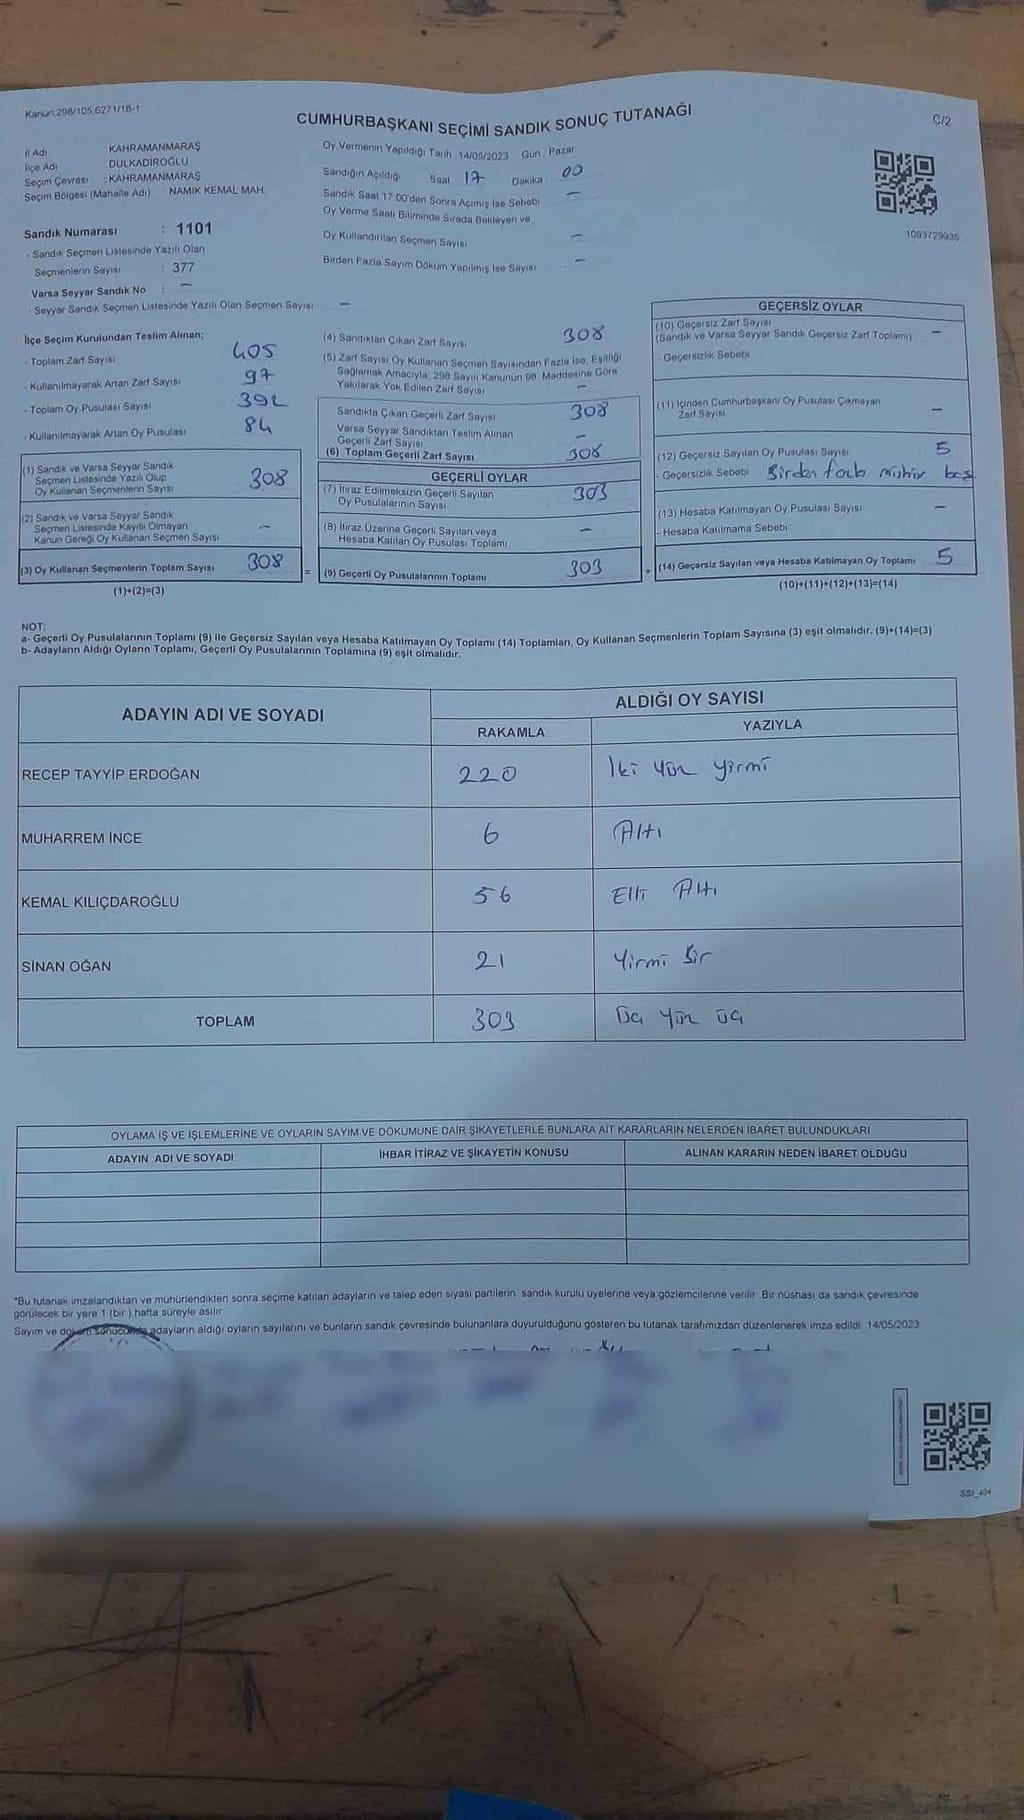 Kanun:298/105,6271/18-1
CUMHURBAŞKANI SEÇİMİ SANDIK SONUÇ TUTANAĞI
C/2
İl Adı KAHRAMANMARAŞ
İlçe Adı DULKADİROĞLU
Seçim Çevresi : KAHRAMANMARAŞ
Seçim Bölgesi (Mahalle Adı) NAMIK KEMAL MAH.
Oy Vermenin Yapıldığı Tarih : 14/05/2023 Gün : Pazar
Sandığın Açıldığı Saat 17 Dakika 00
Sandık Saat 17:00'den Sonra Açılmış İse Sebebi —
Oy Verme Saati Bitiminde Sırada Bekleyen ve
Oy Kullandırılan Seçmen Sayısı —
Birden Fazla Sayım Döküm Yapılmış İse Sayısı —
1093729935
Sandık Numarası : 1101
- Sandık Seçmen Listesinde Yazılı Olan
Seçmenlerin Sayısı : 377
Varsa Seyyar Sandık No : —
- Seyyar Sandık Seçmen Listesinde Yazılı Olan Seçmen Sayısı —
İlçe Seçim Kurulundan Teslim Alınan;
- Toplam Zarf Sayısı 405
- Kullanılmayarak Artan Zarf Sayısı 97
- Toplam Oy Pusulası Sayısı 392
- Kullanılmayarak Artan Oy Pusulası 84
(1) Sandık ve Varsa Seyyar Sandık
Seçmen Listesinde Yazılı Olup
Oy Kullanan Seçmenlerin Sayısı 308
(2) Sandık ve Varsa Seyyar Sandık
Seçmen Listesinde Kayıtlı Olmayan
Kanun Gereği Oy Kullanan Seçmen Sayısı —
(3) Oy Kullanan Seçmenlerin Toplam Sayısı 308
(1)+(2)=(3)
=
(4) Sandıktan Çıkan Zarf Sayısı 308
(5) Zarf Sayısı Oy Kullanan Seçmen Sayısından Fazla İse, Eşitliği
Sağlamak Amacıyla, 298 Sayılı Kanunun 98. Maddesine Göre
Yakılarak Yok Edilen Zarf Sayısı —
Sandıkta Çıkan Geçerli Zarf Sayısı 308
Varsa Seyyar Sandıktan Teslim Alınan
Geçerli Zarf Sayısı —
(6) Toplam Geçerli Zarf Sayısı 308
GEÇERLİ OYLAR
(7) İtiraz Edilmeksizin Geçerli Sayılan
Oy Pusulalarının Sayısı 303
(8) İtiraz Üzerine Geçerli Sayılan veya
Hesaba Katılan Oy Pusulası Toplamı —
(9) Geçerli Oy Pusulalarının Toplamı 303
+
GEÇERSİZ OYLAR
(10) Geçersiz Zarf Sayısı
(Sandık ve Varsa Seyyar Sandık Geçersiz Zarf Toplamı) —
- Geçersizlik Sebebi
(11) İçinden Cumhurbaşkanı Oy Pusulası Çıkmayan
Zarf Sayısı —
(12) Geçersiz Sayılan Oy Pusulası Sayısı 5
- Geçersizlik Sebebi Birden fazla mühür boş
(13) Hesaba Katılmayan Oy Pusulası Sayısı —
- Hesaba Katılmama Sebebi
(14) Geçersiz Sayılan veya Hesaba Katılmayan Oy Toplamı 5
(10)+(11)+(12)+(13)=(14)
NOT:
a- Geçerli Oy Pusulalarının Toplamı (9) ile Geçersiz Sayılan veya Hesaba Katılmayan Oy Toplamı (14) Toplamları, Oy Kullanan Seçmenlerin Toplam Sayısına (3) eşit olmalıdır. (9)+(14)=(3)
b- Adayların Aldığı Oyların Toplamı, Geçerli Oy Pusulalarının Toplamına (9) eşit olmalıdır.
ADAYIN ADI VE SOYADI ALDIĞI OY SAYISI
RAKAMLA YAZIYLA
RECEP TAYYİP ERDOĞAN 220 İki Yüz Yirmi
MUHARREM İNCE 6 Altı
KEMAL KILIÇDAROĞLU 56 Elli Altı
SİNAN OĞAN 21 Yirmi Bir
TOPLAM 303 Üç Yüz Üç
OYLAMA İŞ VE İŞLEMLERİNE VE OYLARIN SAYIM VE DÖKÜMÜNE DAİR ŞİKAYETLERLE BUNLARA AİT KARARLARIN NELERDEN İBARET BULUNDUKLARI
ADAYIN ADI VE SOYADI İHBAR İTİRAZ VE ŞİKAYETİN KONUSU ALINAN KARARIN NEDEN İBARET OLDUĞU
*Bu tutanak imzalandıktan ve mühürlendikten sonra seçime katılan adayların ve talep eden siyasi partilerin sandık kurulu üyelerine veya gözlemcilerine verilir. Bir nüshası da sandık çevresinde
görülecek bir yere 1 (bir ) hafta süreyle asılır.
Sayım ve döküm sonucunda adayların aldığı oyların sayılarını ve bunların sandık çevresinde bulunanlara duyurulduğunu gösteren bu tutanak tarafımızdan düzenlenerek imza edildi. 14/05/2023
SSI_404